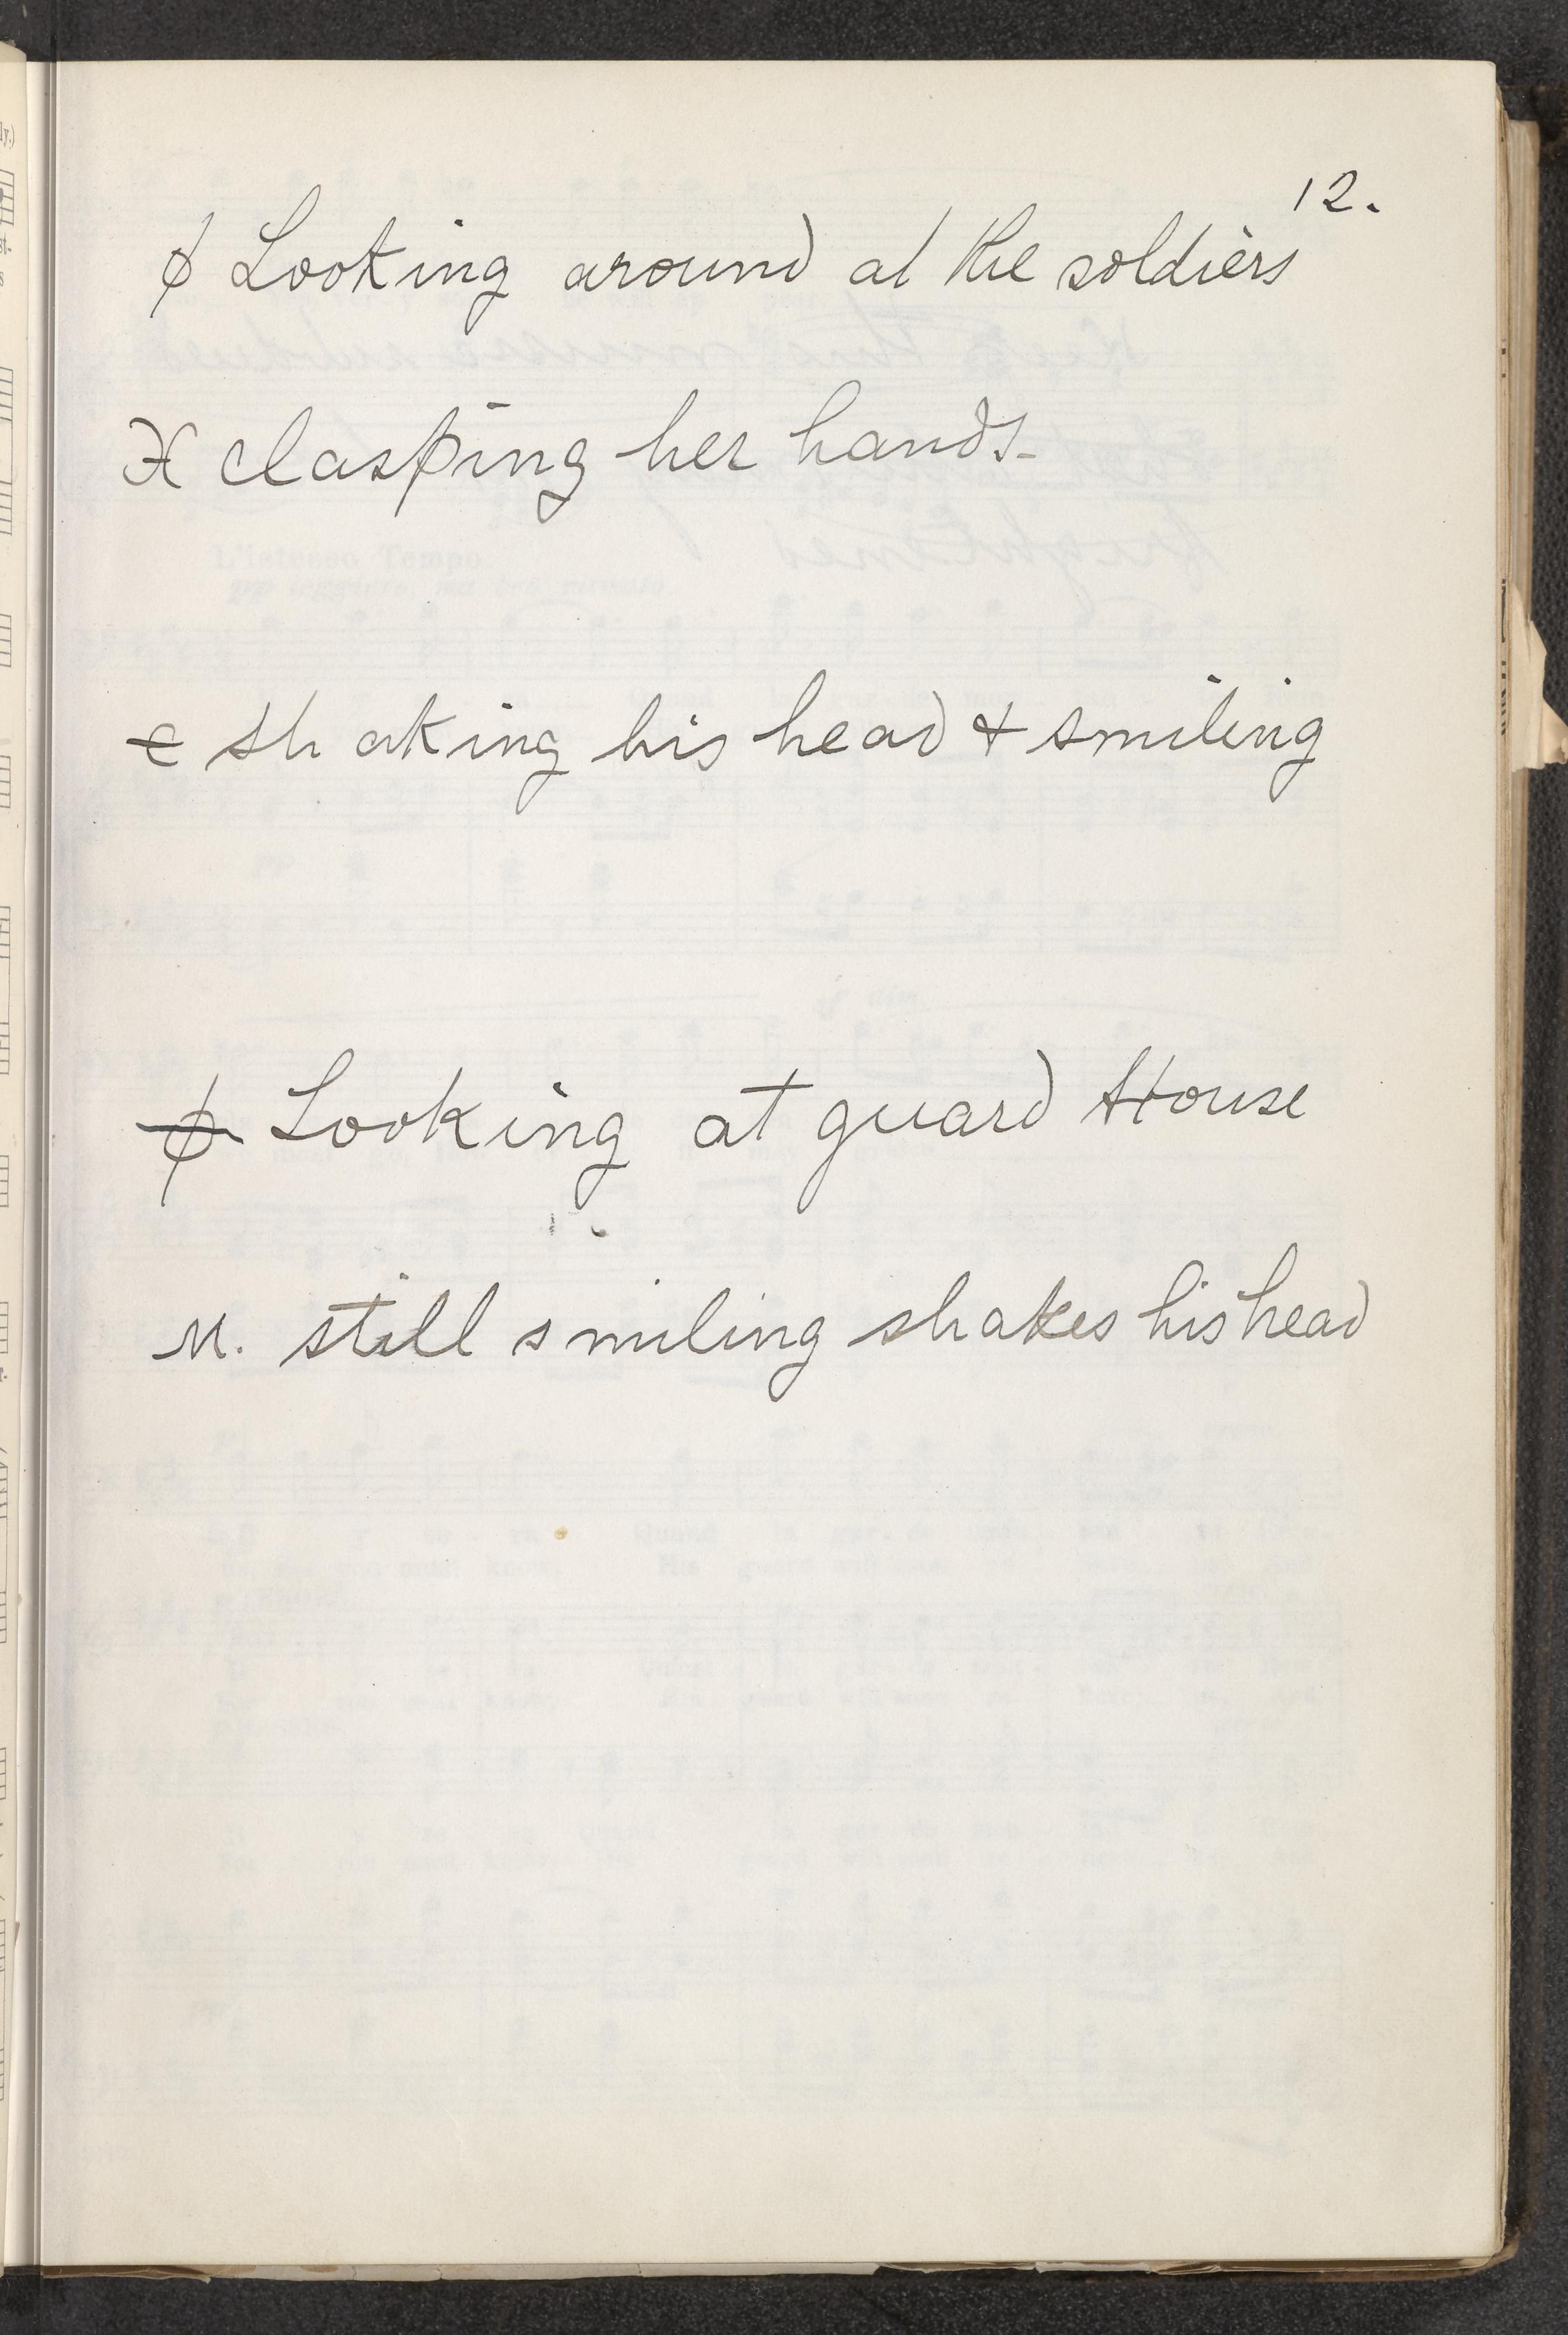 12.
ϕ Looking around at the soldiers
X clasping her hands-
є shaking his head & smiling
ϕ Looking at guard House
M. still smiling shakes his head
L'istesso Tempo.